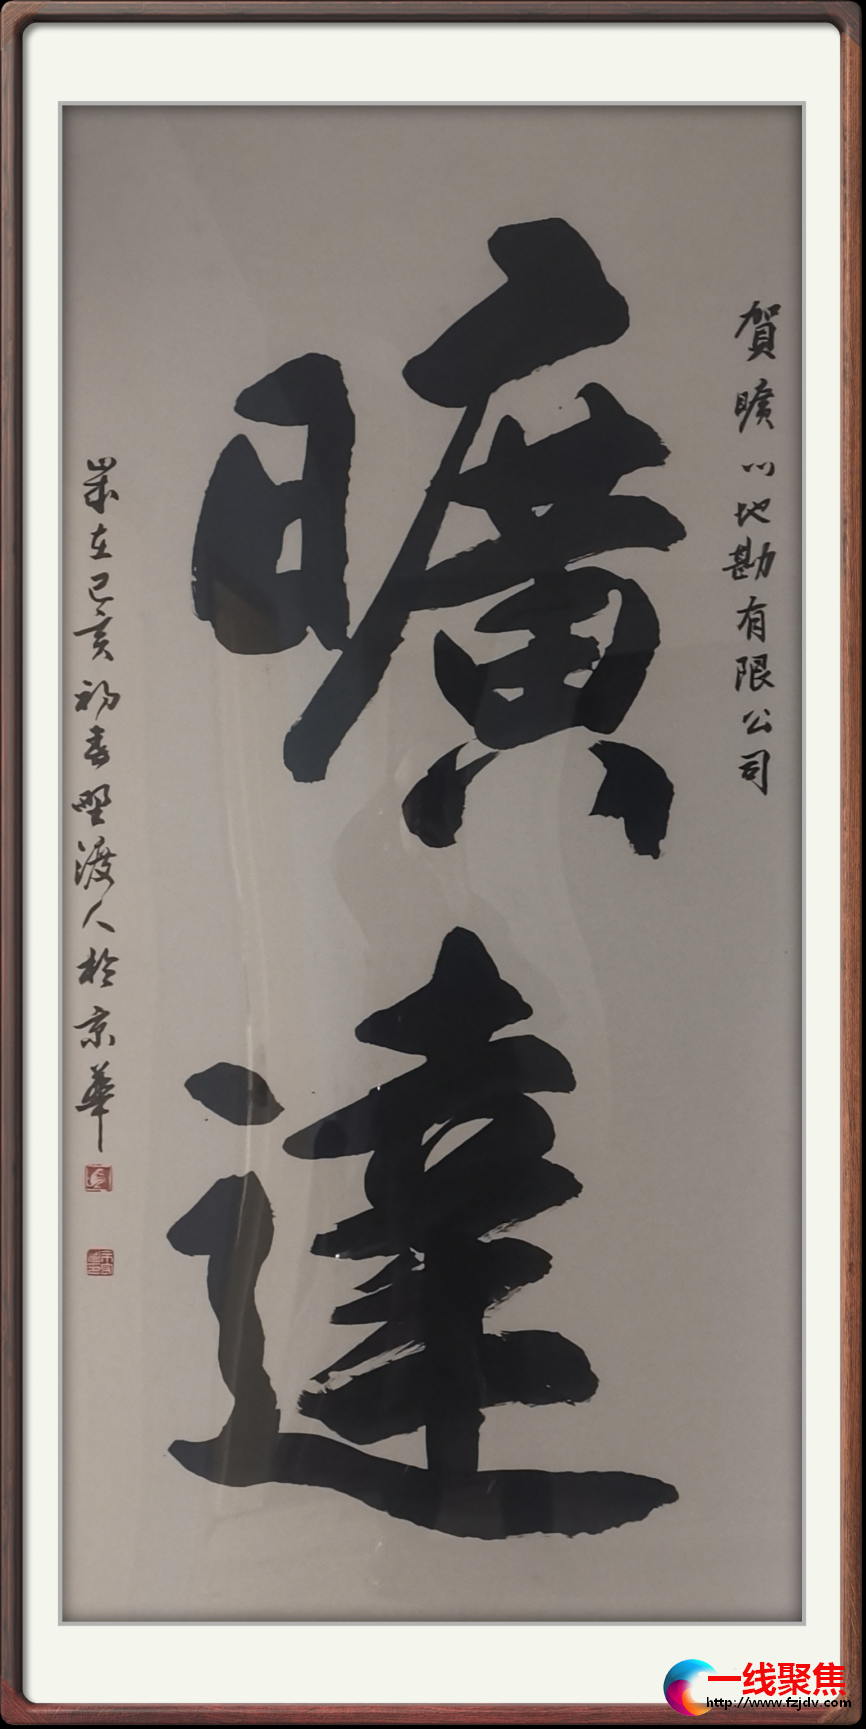 賀曠川地勘有限公司
曠達
歲在己亥初春野渡人於京華
一线聚焦
http://www.fzjdv.com